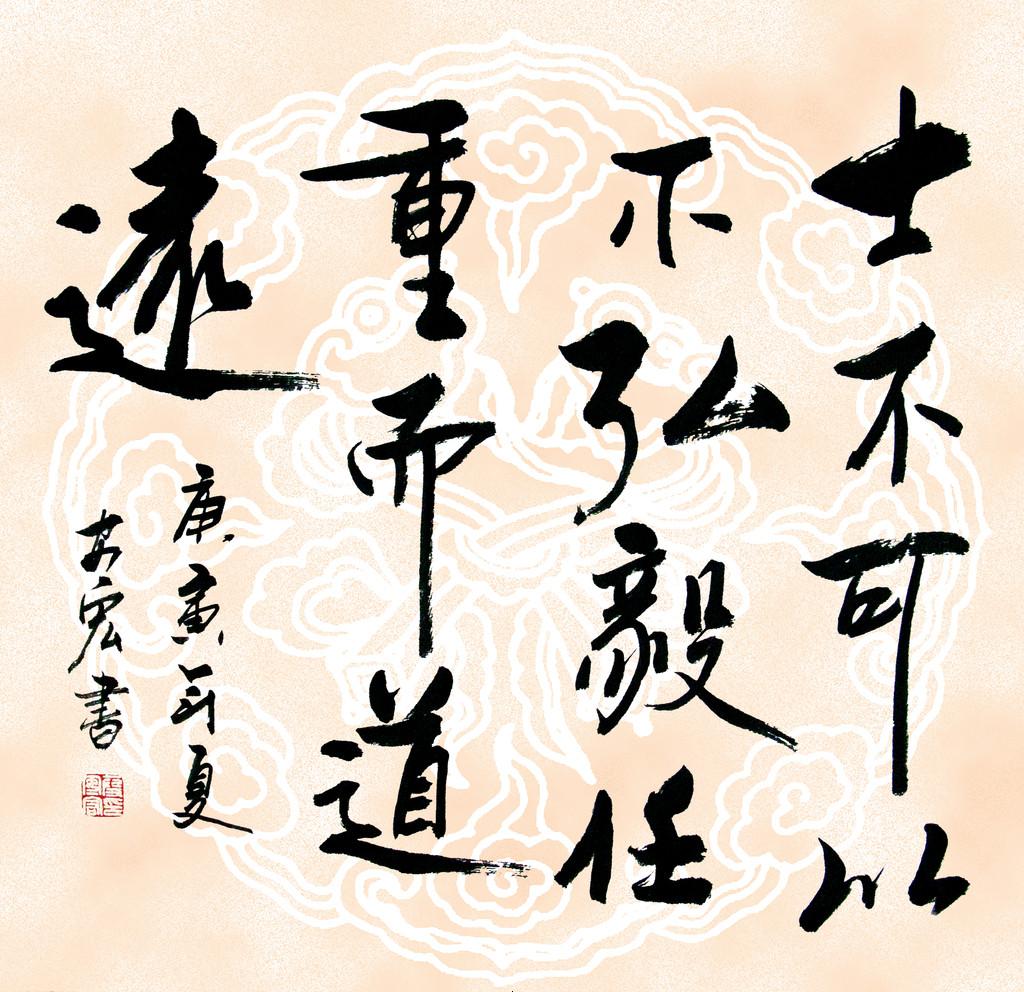 士不可以
不弘毅任
重而道
遠
庚寅年夏
宏書